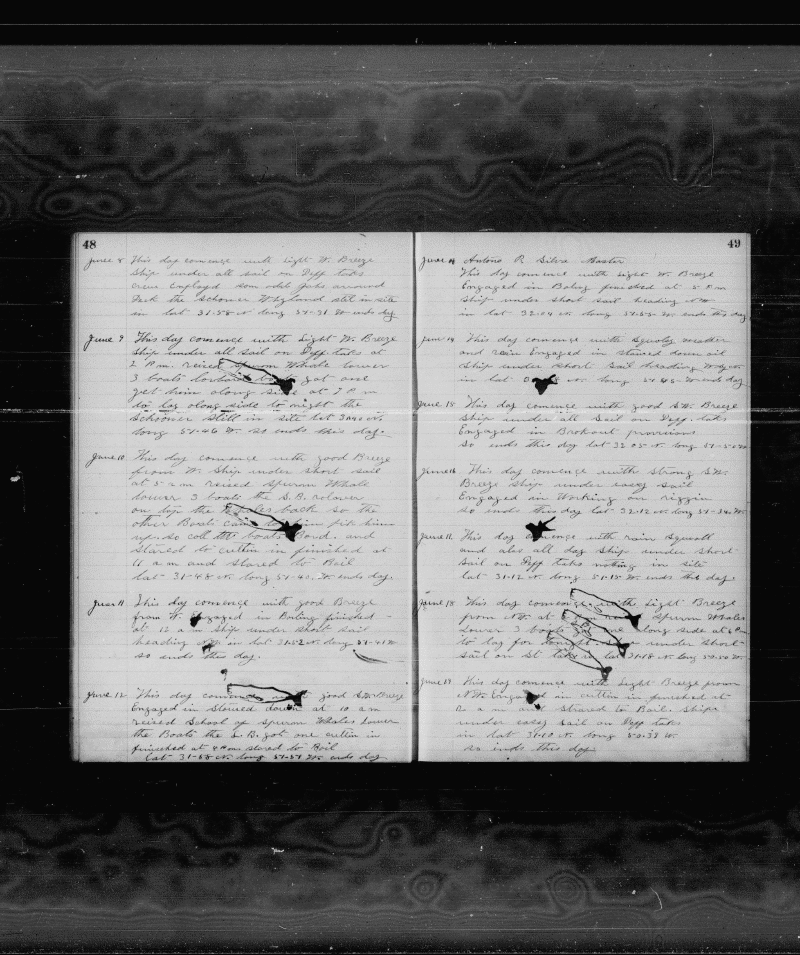 48
June 8 This day comence with Light W. Breeze
Ship under all sail on Deff taks
crew employd som odd jobs arround
Deck the Schooner Wayland still in site
in lat 31-58 N long 51-31 W ends day
June 9 This day comence with Light W. Breeze
Ship under all sail on Deff taks at
2 P.m. reised Spurm Whale lower
3 boats got one
get him along side at 7 P m
to lay along side to night the
Schooner still in site lat N.
long 51-46 W. so ends this day.
June 10 This day comence with good Breeze
from W. Ship under short sail
at 5 a m reised Spurm Whale
lower 3 boats the S.B.
on top the back so the
other Boats him him
up. so coll the boats Bord. and
stared to cuttin in finished at
11 a m and stared to Boil
lat 31-48 N long 51-40. W. ends day.
June 11 This day comence with good Breeze
from W. Engaged in Boiling finished
at 12 a m Ship under short sail
heading in lat 31-52 N long 51-41 W
so ends this day.
June 12 This day comence good S.W. Breeze
Engaged in stowed down at 10 a m
reised School of Spurm Whales Lower
the Boats the S.B. got one cuttin in
finished at 4 P m stared to Boil
lat 31-58 N. long 51-51 W. ends day
49
June Antone R Silva Master
This day comence with light W. Breeze
Engaged in Boiling finished at 5 P m
Ship under short sail heading
in lat 32-04 N long W ends this day
June 14 This day comence with Squaly weather
and rain Engaged in stowed down oil
Ship under short sail heading
in lat N. long 51-48- W ends day
June 15 This day comence with good S.W. Breeze
Ship under all sail on Deff taks
Engaged in Brokout provisions
so ends this day lat 32 05 N. long
June 16 This day comence with Strong S.W.
Breeze Ship under easey sail
Engaged in Working on riggin
so ends this day lat 32-12 N. long 51-34 W.
June This day comence with rain Squall
and alss all day Ship under short
sail on Deff taks noting in site
lat 31-12 N long 51-15 W. ends this day.
June 18 This day comence with Light Breeze
from N.W. at Spurm Whales
Lower 3 boats one long side at 6 P m
to lay for tonight Ship under Short
sail on St taks in lat 31-18 N. long 50-50 W.
June 19 This day comence with Light Breeze from
N.W. Engaged in cuttin in finished at
a m and stared to Boil. Ship
under easey sail on Deff taks
in lat 31-10 N. long 50-39 W.
so ends this day